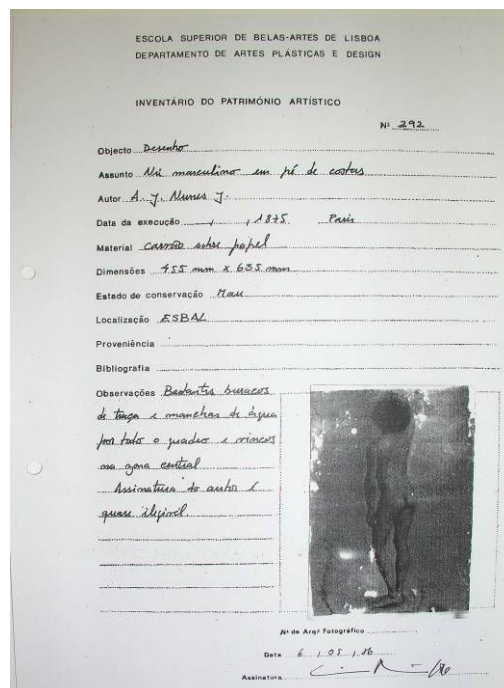 ESCOLA SUPERIOR DE BELAS-ARTES DE LISBOA
DEPARTAMENTO DE ARTES PLÁSTICAS E DESIGN
INVENTÁRIO DO PATRIMÓNIO ARTÍSTICO
Nº 292
Objecto Desenho
Assunto Nú masculino em pé de costas
Autor A. J. Nunes J.
Data da execução , , 1875 Paris
Material carvão sobre papel
Dimensões 455 mm x 635 mm
Estado de conservação Mau
Localização ESBAL
Proveniência
Bibliografia
Observações Bastantes buracos
de traça e manchas de água
por todo o quadro e vincos
na zona central
Assinatura do autor é
quase ilegível.
Nº de Arqº Fotográfico
Data 6 , 05 , 86
Assinatura